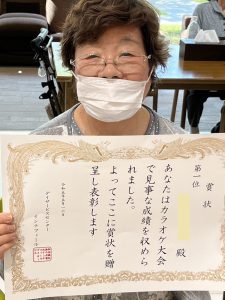 賞状
第一位
殿
あなたはカラオケ大会
で見事な成績を収めら
れました。
よってここに賞状を贈
呈し表彰します
デイサービスセンター